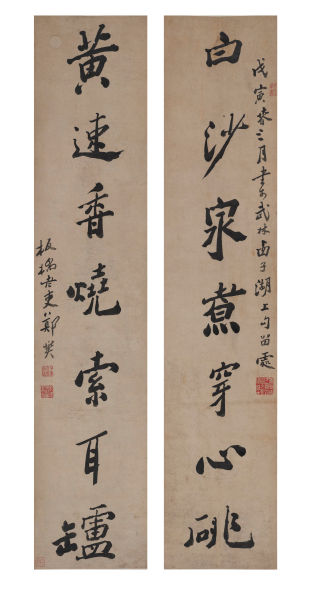 戊寅春三月書於武林西子湖上勾留處
白沙泉煮穿心
黃速香燒索耳鑪
板橋老吏鄭燮